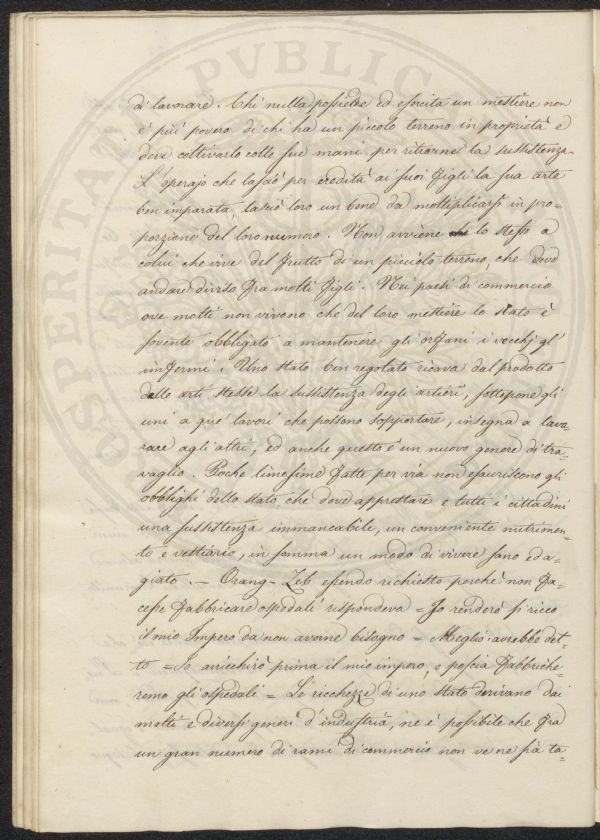 di lavorare. Chi nulla possiede ed esercita un mestiere non
è più povero di chi ha un piccolo terreno in proprietà e
deve coltivarlo colle sue mani per ritrarne la sussistenza.
L'operajo che lasciò per eredità ai suoi figli la sua arte
ben imparata, lasciò loro un bene da moltiplicarsi in pro=
porzione del loro numero. Non avviene lo stesso a
colui che vive del frutto di un picciolo terreno, che deve
andare diviso fra molti figli. Nei paesi di commercio
ove molti non vivono che del loro mestiere lo stato è
sovente obbligato a mantenere gli orfani i vecchj gl'
infermi. Uno stato ben regolato ricava dal prodotto
delle arti stesse la sussistenza degli artieri, sottopone gli
uni a que' lavori che possono sopportare, insegna a lavo=
rare agli altri, ed anche questo è un nuovo genere di tra=
vaglio. Poche limosine fatte per via non esauriscono gli
obblighi dello stato che deve apprestare e tutti i cittadini
una sussistenza immancabile, un conveniente nutrimen=
to e vestiario, in somma un modo di vivere sano ed a=
giato. — Orang-Zeb essendo richiesto perchè non fa=
cesse fabbricare ospedali rispondeva = Io renderò sì ricco
il mio Impero da non averne bisogno = Meglio avrebbe det=
to = Io arricchirò prima il mio impero, e poscia fabbriche=
remo gli ospedali = Le ricchezze di uno stato derivano dai
molti e diversi generi d'industria, ne è possibile che fra
un gran numero di rami di commercio non ve ne sia ta=
PVBLIC